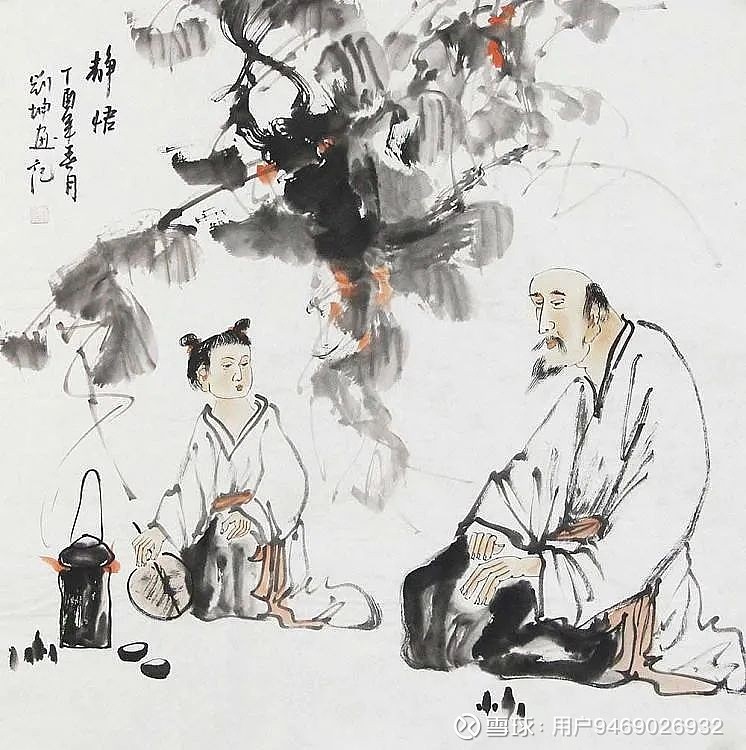 静悟
丁酉年春月
刘坤画记
雪球：用户9469026932